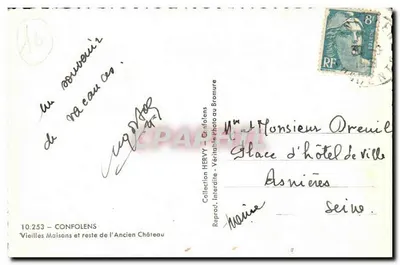 un souvenir
de vacances.
10.253 — CONFOLENS
Vieilles Maisons et reste de l'Ancien Château
Collection HERVY — Confolens
Reprod. Interdite - Véritable photo au Bromure
8F
RF
Mme & Monsieur Dreuil
Place d'hôtel de Ville
Asnières
Seine.
Mairie